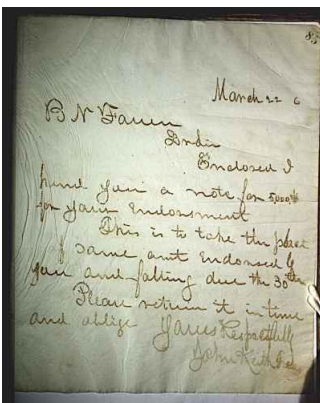 85
March 22 6
B N Farren
Dr Sir
Enclosed I
hand you a note for 5,000
for your Endorsment
This is to take the place
of same amt Endorsed by
you and falling due the 30th
Please return it in time
and oblige Yours Respectfully
John Keith